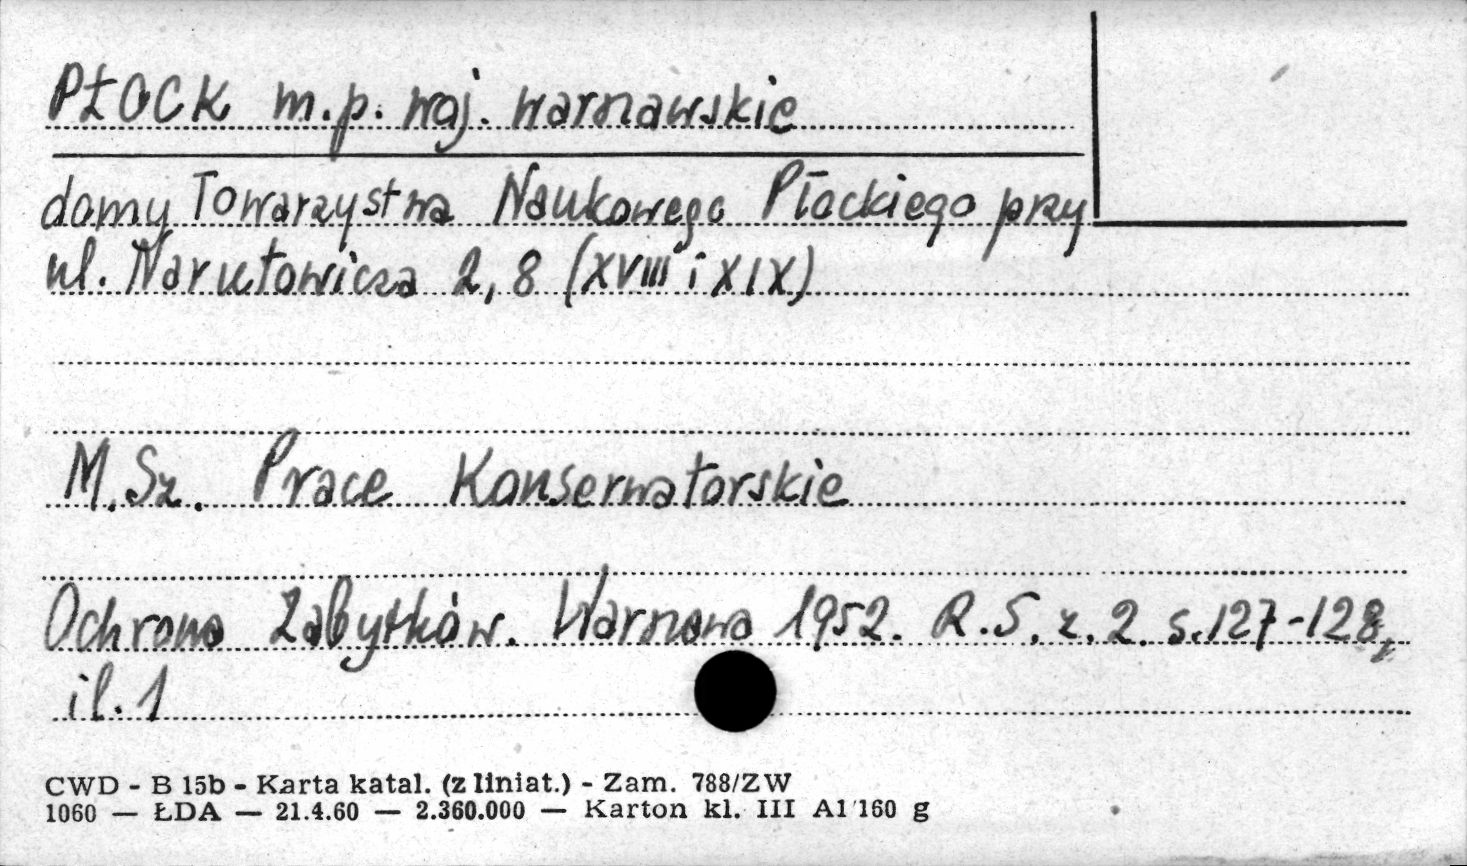 PŁOCK m.p. woj. warszawskie
domy Towarzystwa Naukowego Płockiego przy
ul. Narutowicza 2, 8 (XVIII i XIX)
M. Sz. Prace Konserwatorskie
Ochrona Zabytków. Warszawa 1952. R.5. z. 2. s. 127-128,
il. 1
CWD - B 15b - Karta katal. (z liniat.) - Zam. 788/ZW
1060 — ŁDA — 21.4.60 — 2.360.000 — Karton kl. III A1 160 g